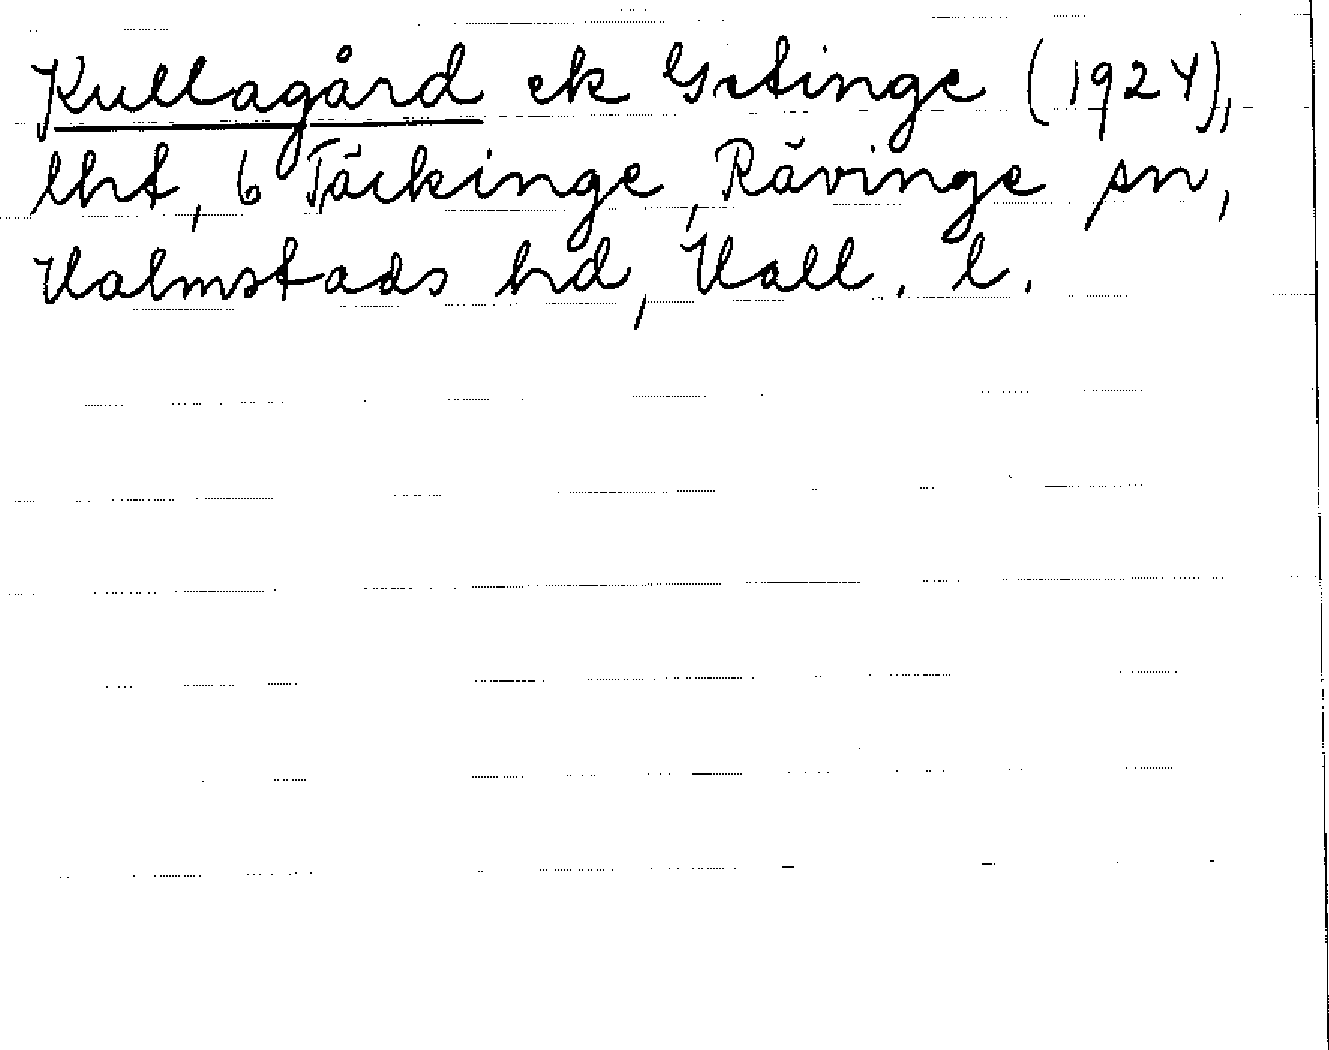 Kullagård ek Getinge (1924),
lht, 6 Täckinge, Rävinge sn,
Halmstads hd, Hall. l.